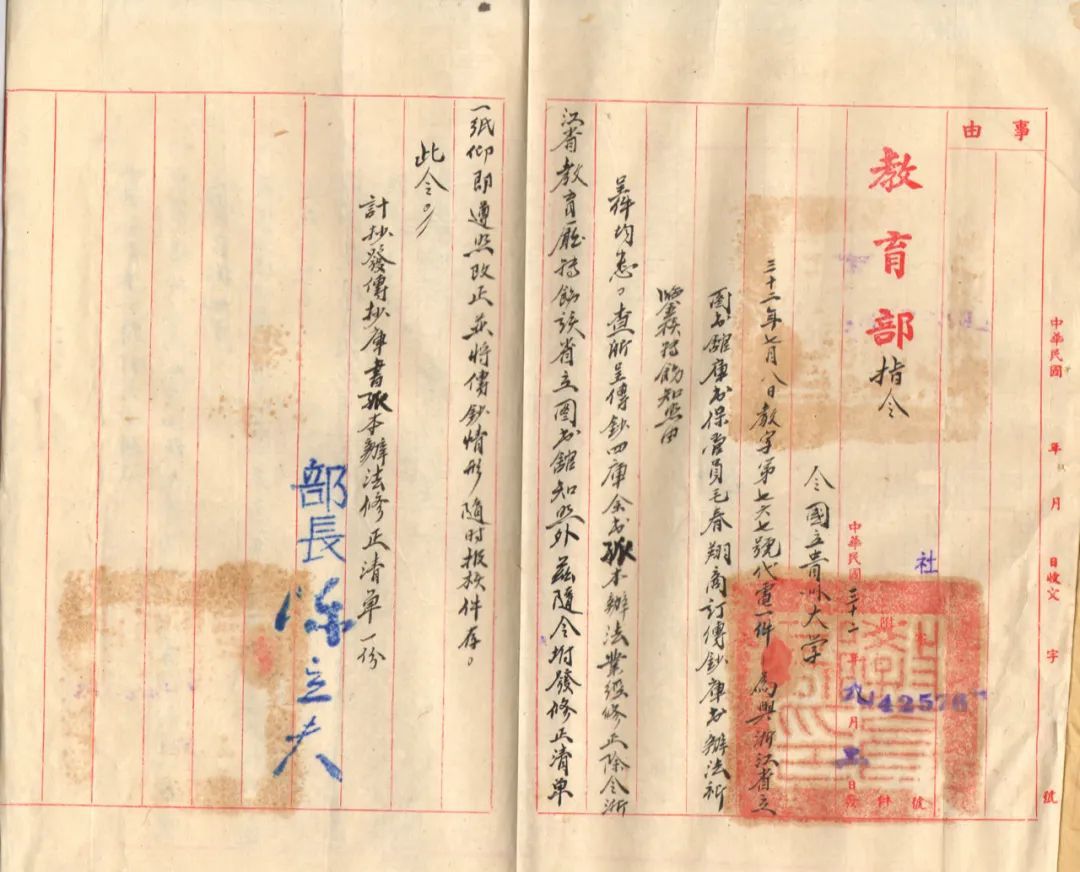 中華民國 年 月 日收文 字 號
事由
教育部指令
社 字第42576號
附 件
中華民國三十二年九月 日發
令國立貴州大学
三十二年七月八日教字第七六七號代電一件為與浙江省立
圖书館庫书保管員毛春翔商订傳鈔庫书辦法祈
鑒核转飭知照由
呈件均悉。查所呈傳鈔四庫全书孤本辦法業經修正除令浙
江省教育廳转飭該省立圖书館知照外茲隨令坿發修正清單
一紙仰即遵照改正并将傳鈔情形隨时报核件存。
此令。
計抄發傳抄庫書孤本辦法修正清单一份
部長陳立夫